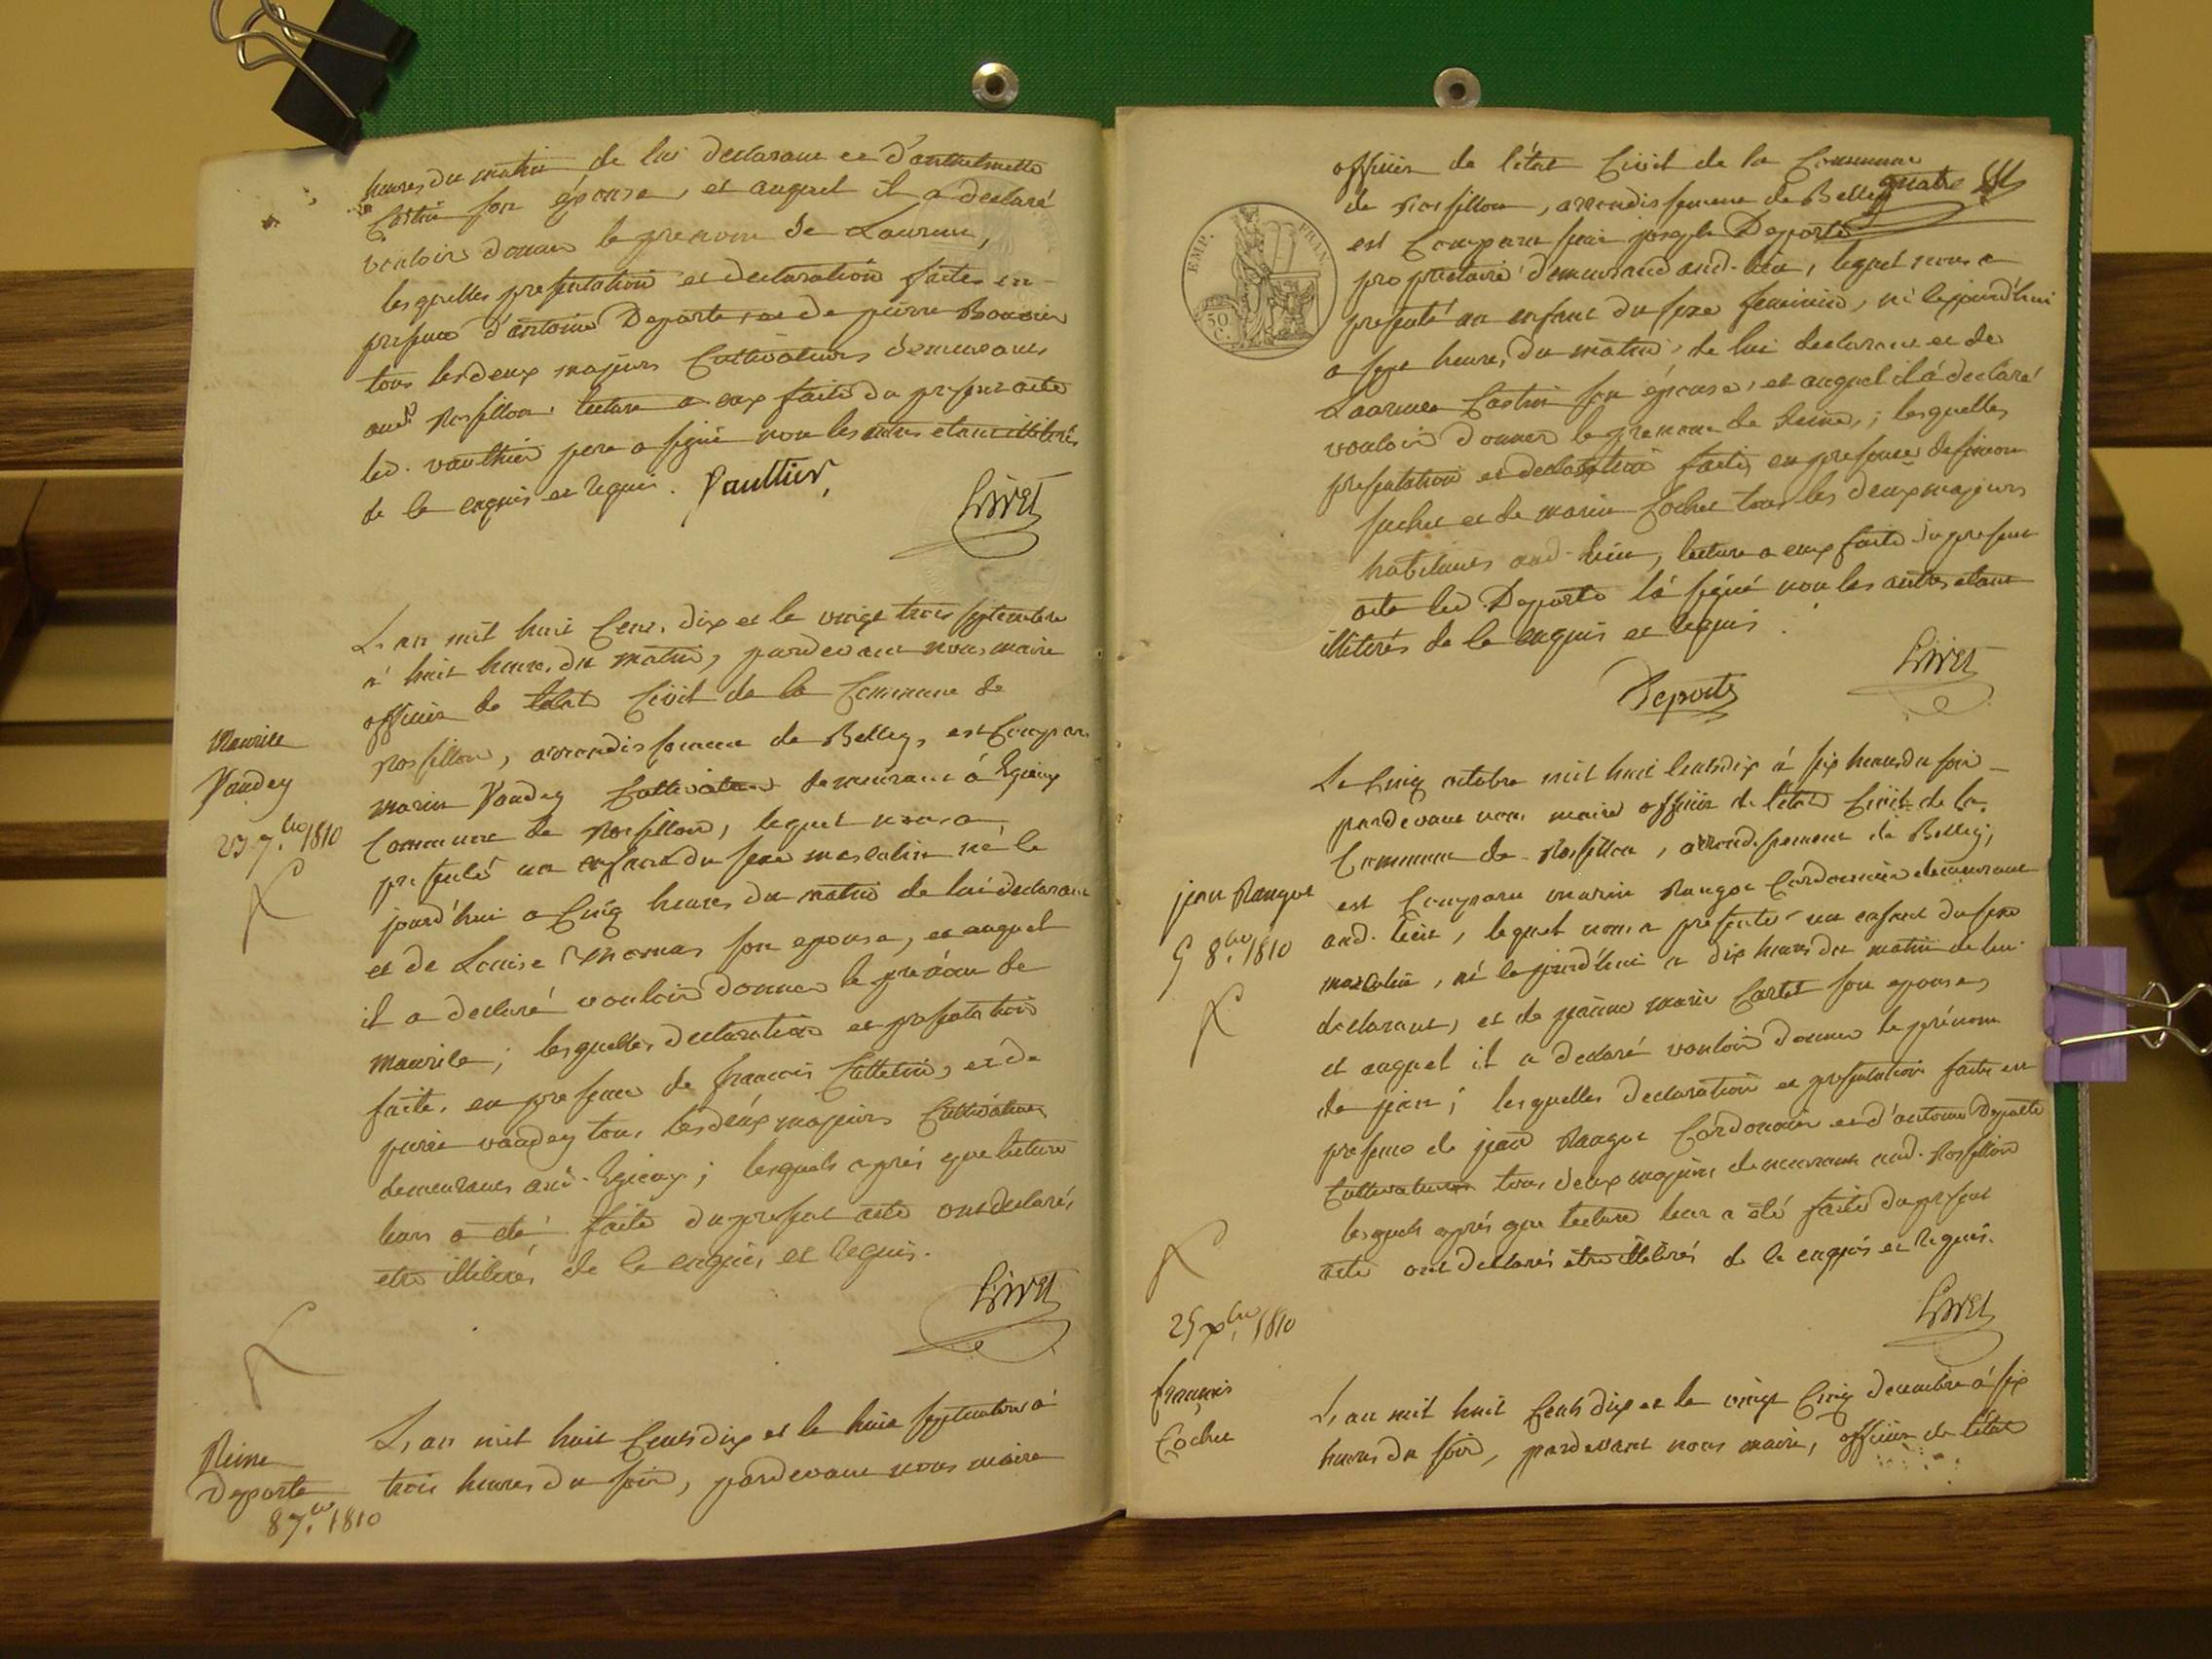 heures du matin de lui declarant et d'anthelmette
Costin son épouse, et auquel il a declaré
vouloir donner le prenom de Laurent,
lesquelles presentation et declaration faites en
presence d'antoine Deporte, et de pierre
tous les deux majeurs Cultivateurs demeurants
aud. Rossillon, lecture a eux faite du present acte
led. vaulthier pere a signé non les autres etant illiterés
de le enquis et requis. Vaulthier,
Livet
L'an mil huit Cent dix et le vingt trois septembre
à huit heures du matin, pardevant nous maire
officier de l'état Civil de la Commune de
Rossillon, arrondissement de Belley, est Comparu
Maurile
Vaudey
23 7.bre 1810
marin Vaudey Cultivateur demeurant à Egieux
Commune de Rossillon, lequel nous a
presenté un enfant du sexe masculin né le
jourd'hui a Cinq heures du matin de lui declarant
et de Louise Thomas son epouse, et auquel
il a declaré vouloir donner le prénom de
maurile; lesquelles declaration et presentation
faite, en presence de francois Cattelin, et de
pierre vaudey tous les deux majeurs Cultivateurs
demeurants aud. Egieux; lesquels après que lecture
leurs a eté faite du present acte ont declarés
etre illiterés de le enquis et requis.
Livet
Reine
Deporte
8 7.bre 1810
L'an mil huit Cents dix et le huit septembre à
trois heures du soir, pardevant nous maire
quatre
officier de l'état Civil de la Commune
de Rossillon, arrondissement de Belley
EMP. FRAN.
50 C.
est Comparu sieur joseph Deporte
proprietaire demeurand aud. lieu, lequel nous a
presenté un enfant du sexe feminin, né le jourd'hui
a sept heures du matin, de lui declarant et de
Laurence Costin son épouse, et auquel il a declaré
vouloir donner le prenom de Reine,; lesquelles
presentation et declaration faites en presence de simon
et de marin Cochet tous les deux majeurs
habitants aud. lieu, lecture a eux faite du present
acte led Deporte la signé non les autres etant
illiterés de le enquis et requis.
Deporte
Livet
Le Cinq octobre mil huit Cents dix à six heures du soir
pardevant nous maire officier de l'état Civil de la
Commune de Rossillon, arrondissement de Belley,
jean Rangot
5 8.bre 1810
est Comparu marin Rangot Cordonnier demeurant
aud. lieu, lequel nous a presenté un enfant du sexe
masculin, né le jourd'hui a dix heures du matin de lui
declarant, et de jeanne marie Cartet son epouse,
et auquel il a declaré vouloir donner le prénom
de jean; lesquelles declaration et presentation faites en
presence de jean Rangot Cordonnier et d'antoine Deporte
Cultivateur tous deux majeurs demeurants aud. Rossillon
lesquels après que lecture leur a été faite du present
acte ont declarés etre illiterés de le enquis et requis.
Livet
25 xbre 1810
françois
Cochet
L'an mil huit Cents dix et le vingt Cinq decembre à six
heures du soir, pardevant nous maire, officier de l'état